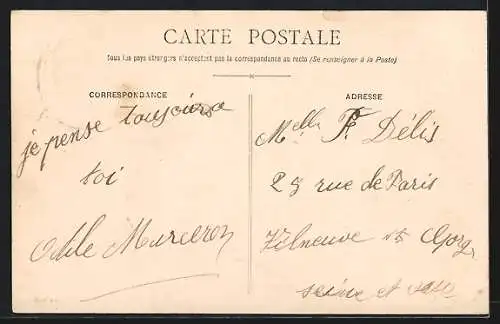 CARTE POSTALE
Tous les pays étrangers n'acceptent pas la correspondance au recto (Se renseigner à la Poste)
CORRESPONDANCE
je pense toujours a
toi
Odile Marceron
ADRESSE
Melle F. Délis
25 rue de Paris
Villneuve st Gorges
seine et oise